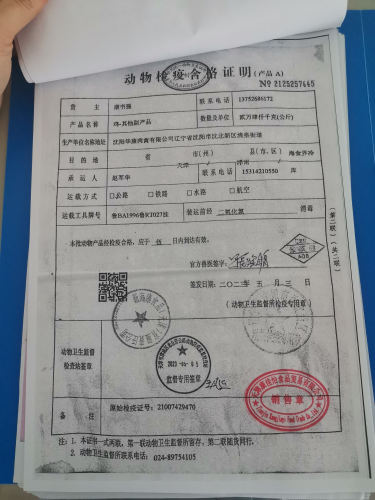 动物检疫合格证明（产品A）
№ 2125257665
货主 康书强 联系电话 13752686172
产品名称 鸡-其他副产品 数量及单位 贰万肆仟千克(公斤)
生产单位名称地址 沈阳华康肉禽有限公司辽宁省沈阳市沈北新区
目的地 省 天津 市(州) 津南 县(市、区)
承运人 赵军华 联系电话 15314210550
运载方式 □公路 □铁路 □水路 □航空
运载工具牌号 鲁BA1996鲁R1027挂 装运前经 二氧化氯 消毒
本批动物产品经检疫合格，应于 伍 日内到达有效。
官方兽医签字：
签发日期：二〇二三年 五 月 三 日
（动物卫生监督所检疫专用章）
动物卫生监督检查站签章
2023-05-05
监督专用签章
销售章
备注 原始检疫证号：21007429470
注：1．本证书一式两联，第一联动物卫生监督所留存，第二联随货同行。
2．动物卫生监督所联系电话：024-89754105
（第二联）（共二联）